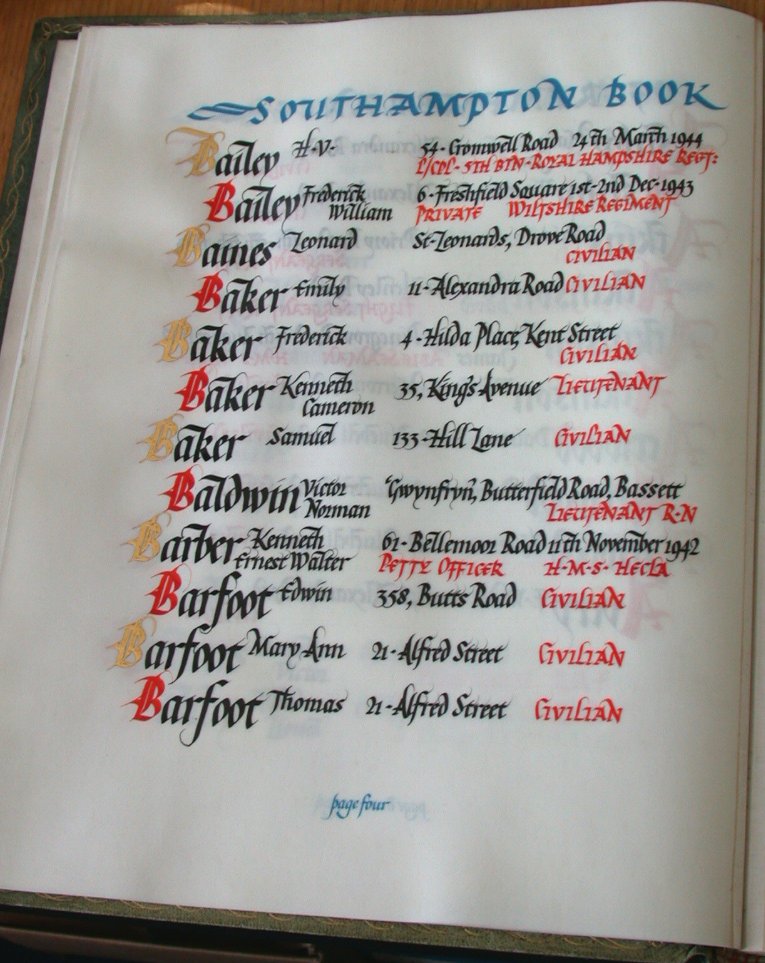 SOUTHAMPTON BOOK
Bailey H·V· 54·Cromwell Road 24th March 1944
L/CPL·5TH BTN·ROYAL HAMPSHIRE REGT:
Bailey Frederick 6·Freshfield Square 1st-2nd Dec·1943
William PRIVATE WILTSHIRE REGIMENT
Baines Leonard St·Leonards, Drove Road
CIVILIAN
Baker Emily 11·Alexandra Road CIVILIAN
Baker Frederick 4·Hilda Place, Kent Street
CIVILIAN
Baker Kenneth 35, King's Avenue LIEUTENANT
Cameron
Baker Samuel 133·Hill Lane CIVILIAN
Baldwin Victor 'Gwynfryn', Butterfield Road, Bassett
Norman LIEUTENANT R·N
Barber Kenneth 61·Bellemoor Road 11th November 1942
Ernest Walter PETTY OFFICER H·M·S· HECLA
Barfoot Edwin 358, Butts Road CIVILIAN
Barfoot Mary·Ann 21·Alfred Street CIVILIAN
Barfoot Thomas 21·Alfred Street CIVILIAN
page four